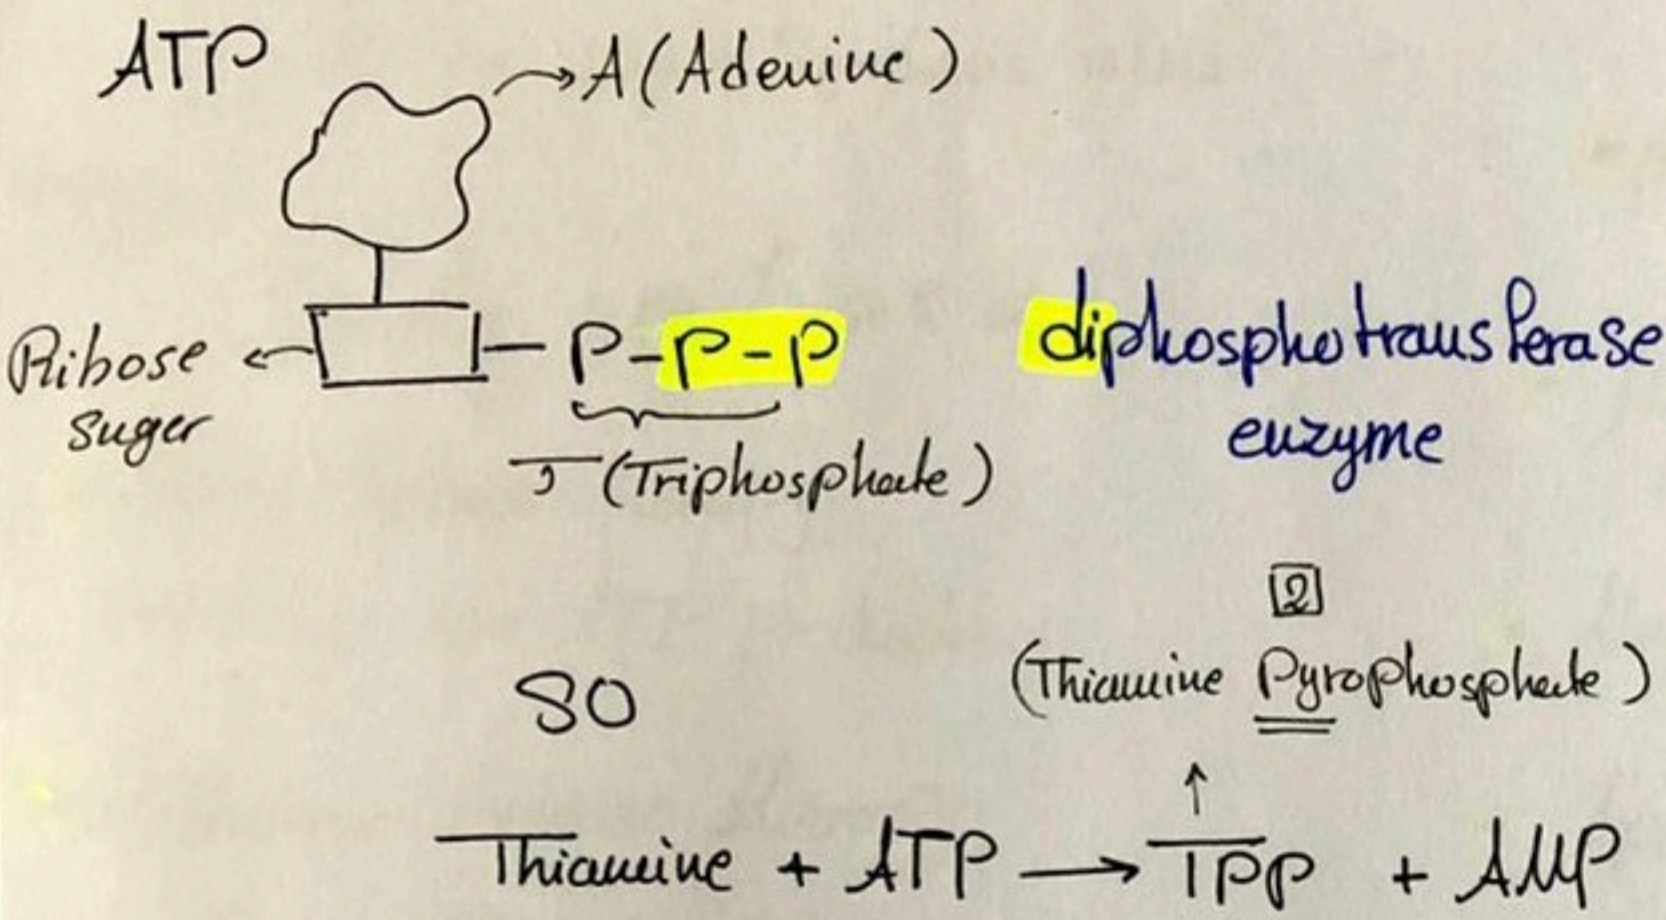 ATP
A (Adenine)
Ribose
suger
P-P-P
T (Triphosphate)
diphosphotransferase
enzyme
2
(Thiamine Pyrophosphate)
SO
↑
Thiamine + ATP → TPP + AMP